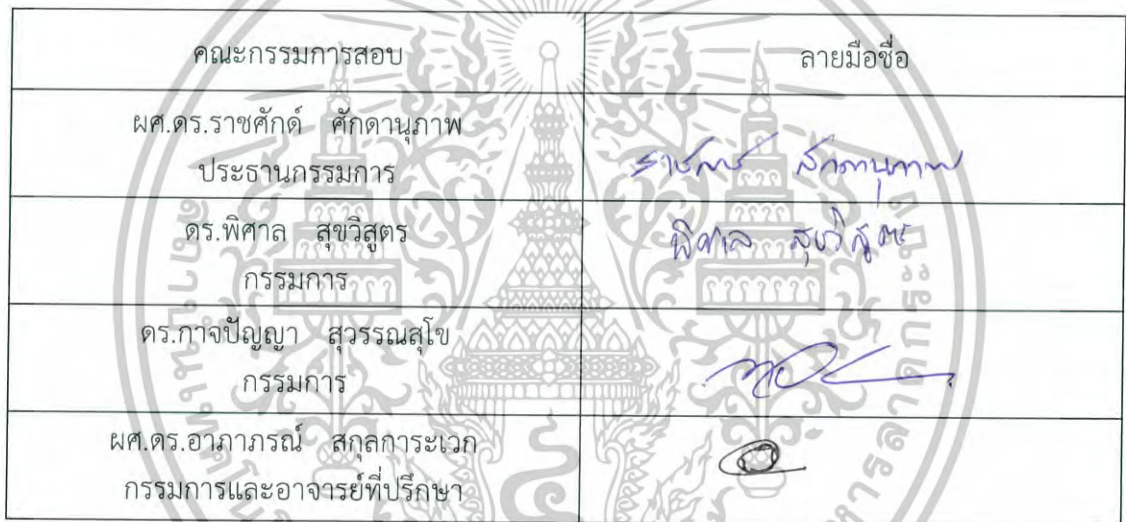 คณะกรรมการสอบ ลายมือชื่อ
ผศ.ดร.ราชศักดิ์ ศักดานุภาพ
ประธานกรรมการ
ราชศักดิ์ ศักดานุภาพ
ดร.พิศาล สุขวิสูตร
กรรมการ
พิศาล สุขวิสูตร
ดร.กาจปัญญา สุวรรณสุโข
กรรมการ
ผศ.ดร.อาภาภรณ์ สกุลการะเวก
กรรมการและอาจารย์ที่ปรึกษา